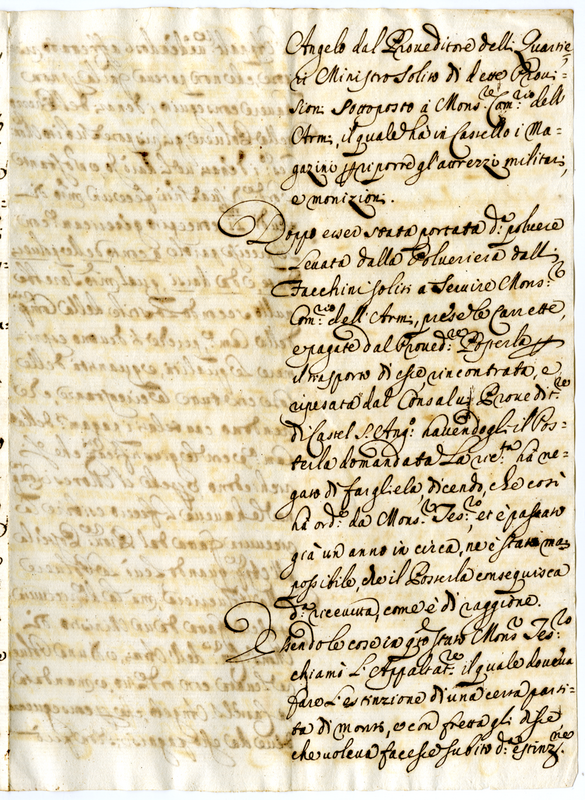 Angelo dal Proveditore delli Quartie=
ri Ministro solito di detta Provi=
sion. Sottoposto à Mons.r Com.rio dell'
Arm:, il quale hà in Castello i Ma=
gazini p riporre gl'attrezzi militari,
e monizion:.
Doppo esser stata portata d.a polvere
Levata dalla Polveriera dalli
Facchini soliti a servire Mons.r
Com.rio dell'Arm:, prese le Carrette,
e pagate dal Proved.re Posterla p
il trasporto di esse rincontrata, e
ripesata dal Consalvi Provedit.re
di Castel S. Ang.o havendogli il Pos=
terla domandata La ric.ta hà ne=
gato di fargliela, dicendo, che così
hà ord.e da Mons.r Tes.ro, et è passato
già un anno in circa, ne è stato mai
possibile, che il Posterla conseguisca
d.a ricevuta, come è di raggione.
Essendo le cose in q.to stato Mons.r Tes.ro
chiamò L'Appaltat.re il quale doveva
fare L'estinzione di una certa parti=
ta di monti, e con fretta gli disse,
che voleva facesse subito d.a estinz.ne